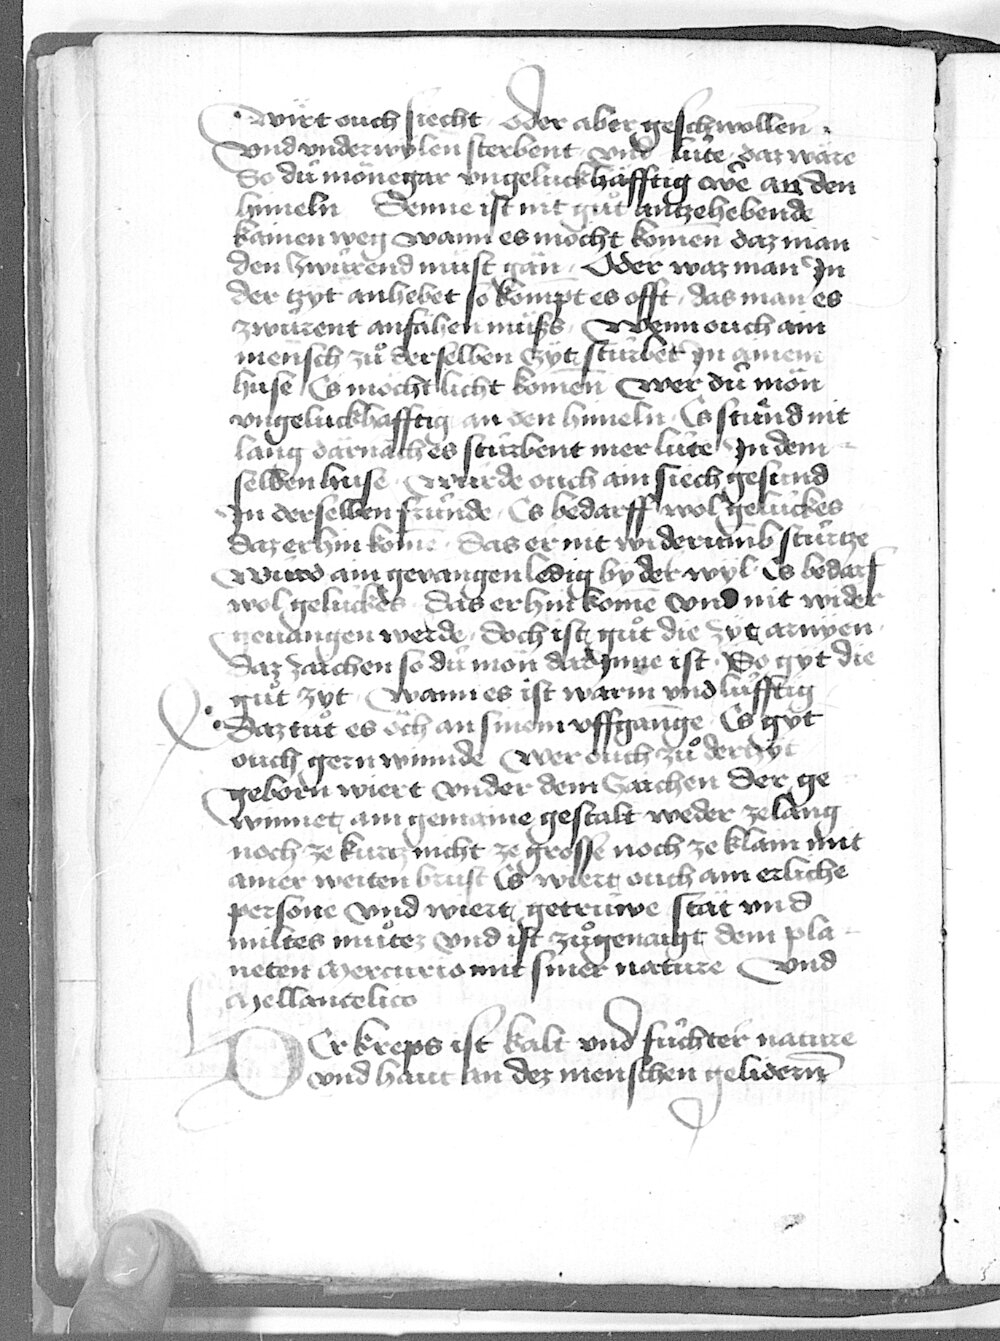 wirt ouch siecht Oder aber geschwollen
Vnd vnderwylen sterbent vnd lu̍te daz wäre
So du̍ möne gar vngelückhäfftig wˢe an den
himeln Denne ist nit gůt antzehebende
kainen weg wann es mocht komen daz man
den zwürend müst gän Oder waz man In
der tzyt anhebet so kompt es offt das man es
zwürent anfahen můss Wenn ouch ain
mensch zů derselben tzyt stürbet In ainem
huse Es möcht licht komen Wer du̍ mön
vngelückhafftig an den himeln Es stu̍nd nit
lang darnach es stürbent mer lüte In dem
selben huse Wurde ouch ain siech gesund
In derselben stunde Es bedarff wol gelückes
daz er hin kome Das er nit widerumb stürtze
Wird ain gevangen ledig by der wyl Es bedarf
wol gelückes das er hin kome Vnd nit wider
gevangen werde Doch ist gůt die zyt artzyen
daz zaichen so du̍ mön dar Inne ist So gyt die
gůt zyt Wann es ist warm vnd lüfftig
Daz tůt es öch an sinem vffgange Es gyt
ouch gern winde Wer ouch zů der tzyt
geborn wiert vnder dem Zaichen Der ge
winnet ain gemaine gestalt weder ze lang
noch ze kurtz nicht ze grosse noch ze klain mit
ainer weiten brust Es wiert ouch ain erliche
persone Vnd wiert getrüwe stät vnd
miltes můtez Vnd ist zůgenaigt dem pla
neten Mercurio mit siner nature Vnd
Mellancolico
Der kreps ist kalt vnd fu̍chter nature
vnd haut an dez menschen gelidern